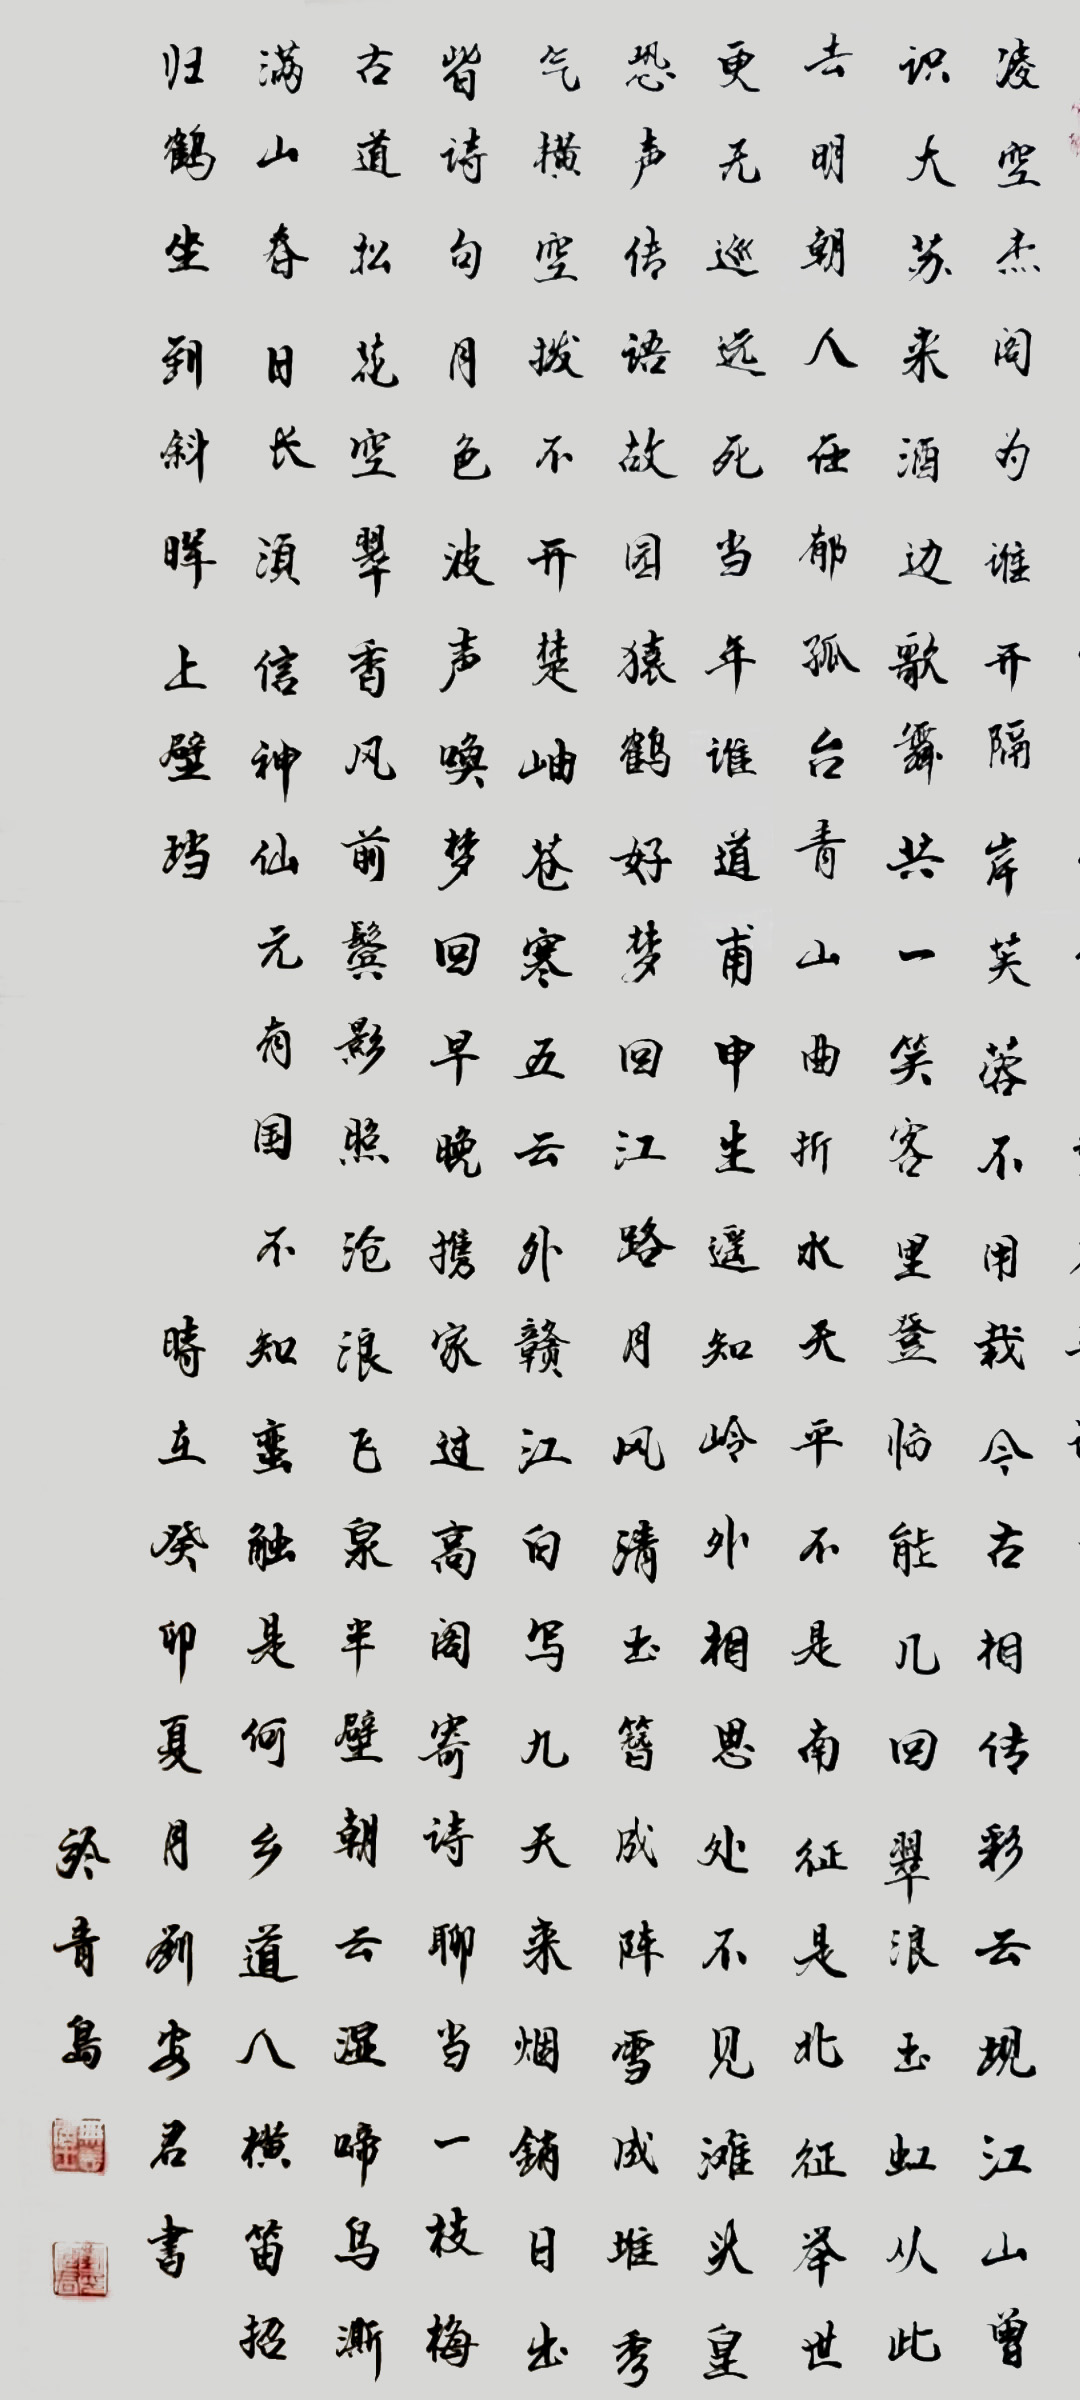 凌空杰阁为谁开隔岸芙蓉不用栽今古相传彩云现江山曾
识大苏来酒边歌舞共一笑客里登临能几回翠浪玉虹从此
去明朝人在郁孤台青山曲折水天平不是南征是北征举世
更无巡远死当年谁道甫申生遥知岭外相思处不见滩头皇
恐声传语故园猿鹤好梦回江路月风清玉簪成阵雪成堆秀
气横空拨不开楚岫苍寒五云外赣江白写九天来烟销日出
皆诗句月色波声唤梦回早晚携家过高阁寄诗聊当一枝梅
古道松花空翠香风前鬓影照沧浪飞泉半壁朝云湿啼鸟
满山春日长须信神仙元有国不知蛮触是何乡道人横笛招
归鹤坐到斜晖上壁珰
时在癸卯夏月刘安君书
於青岛